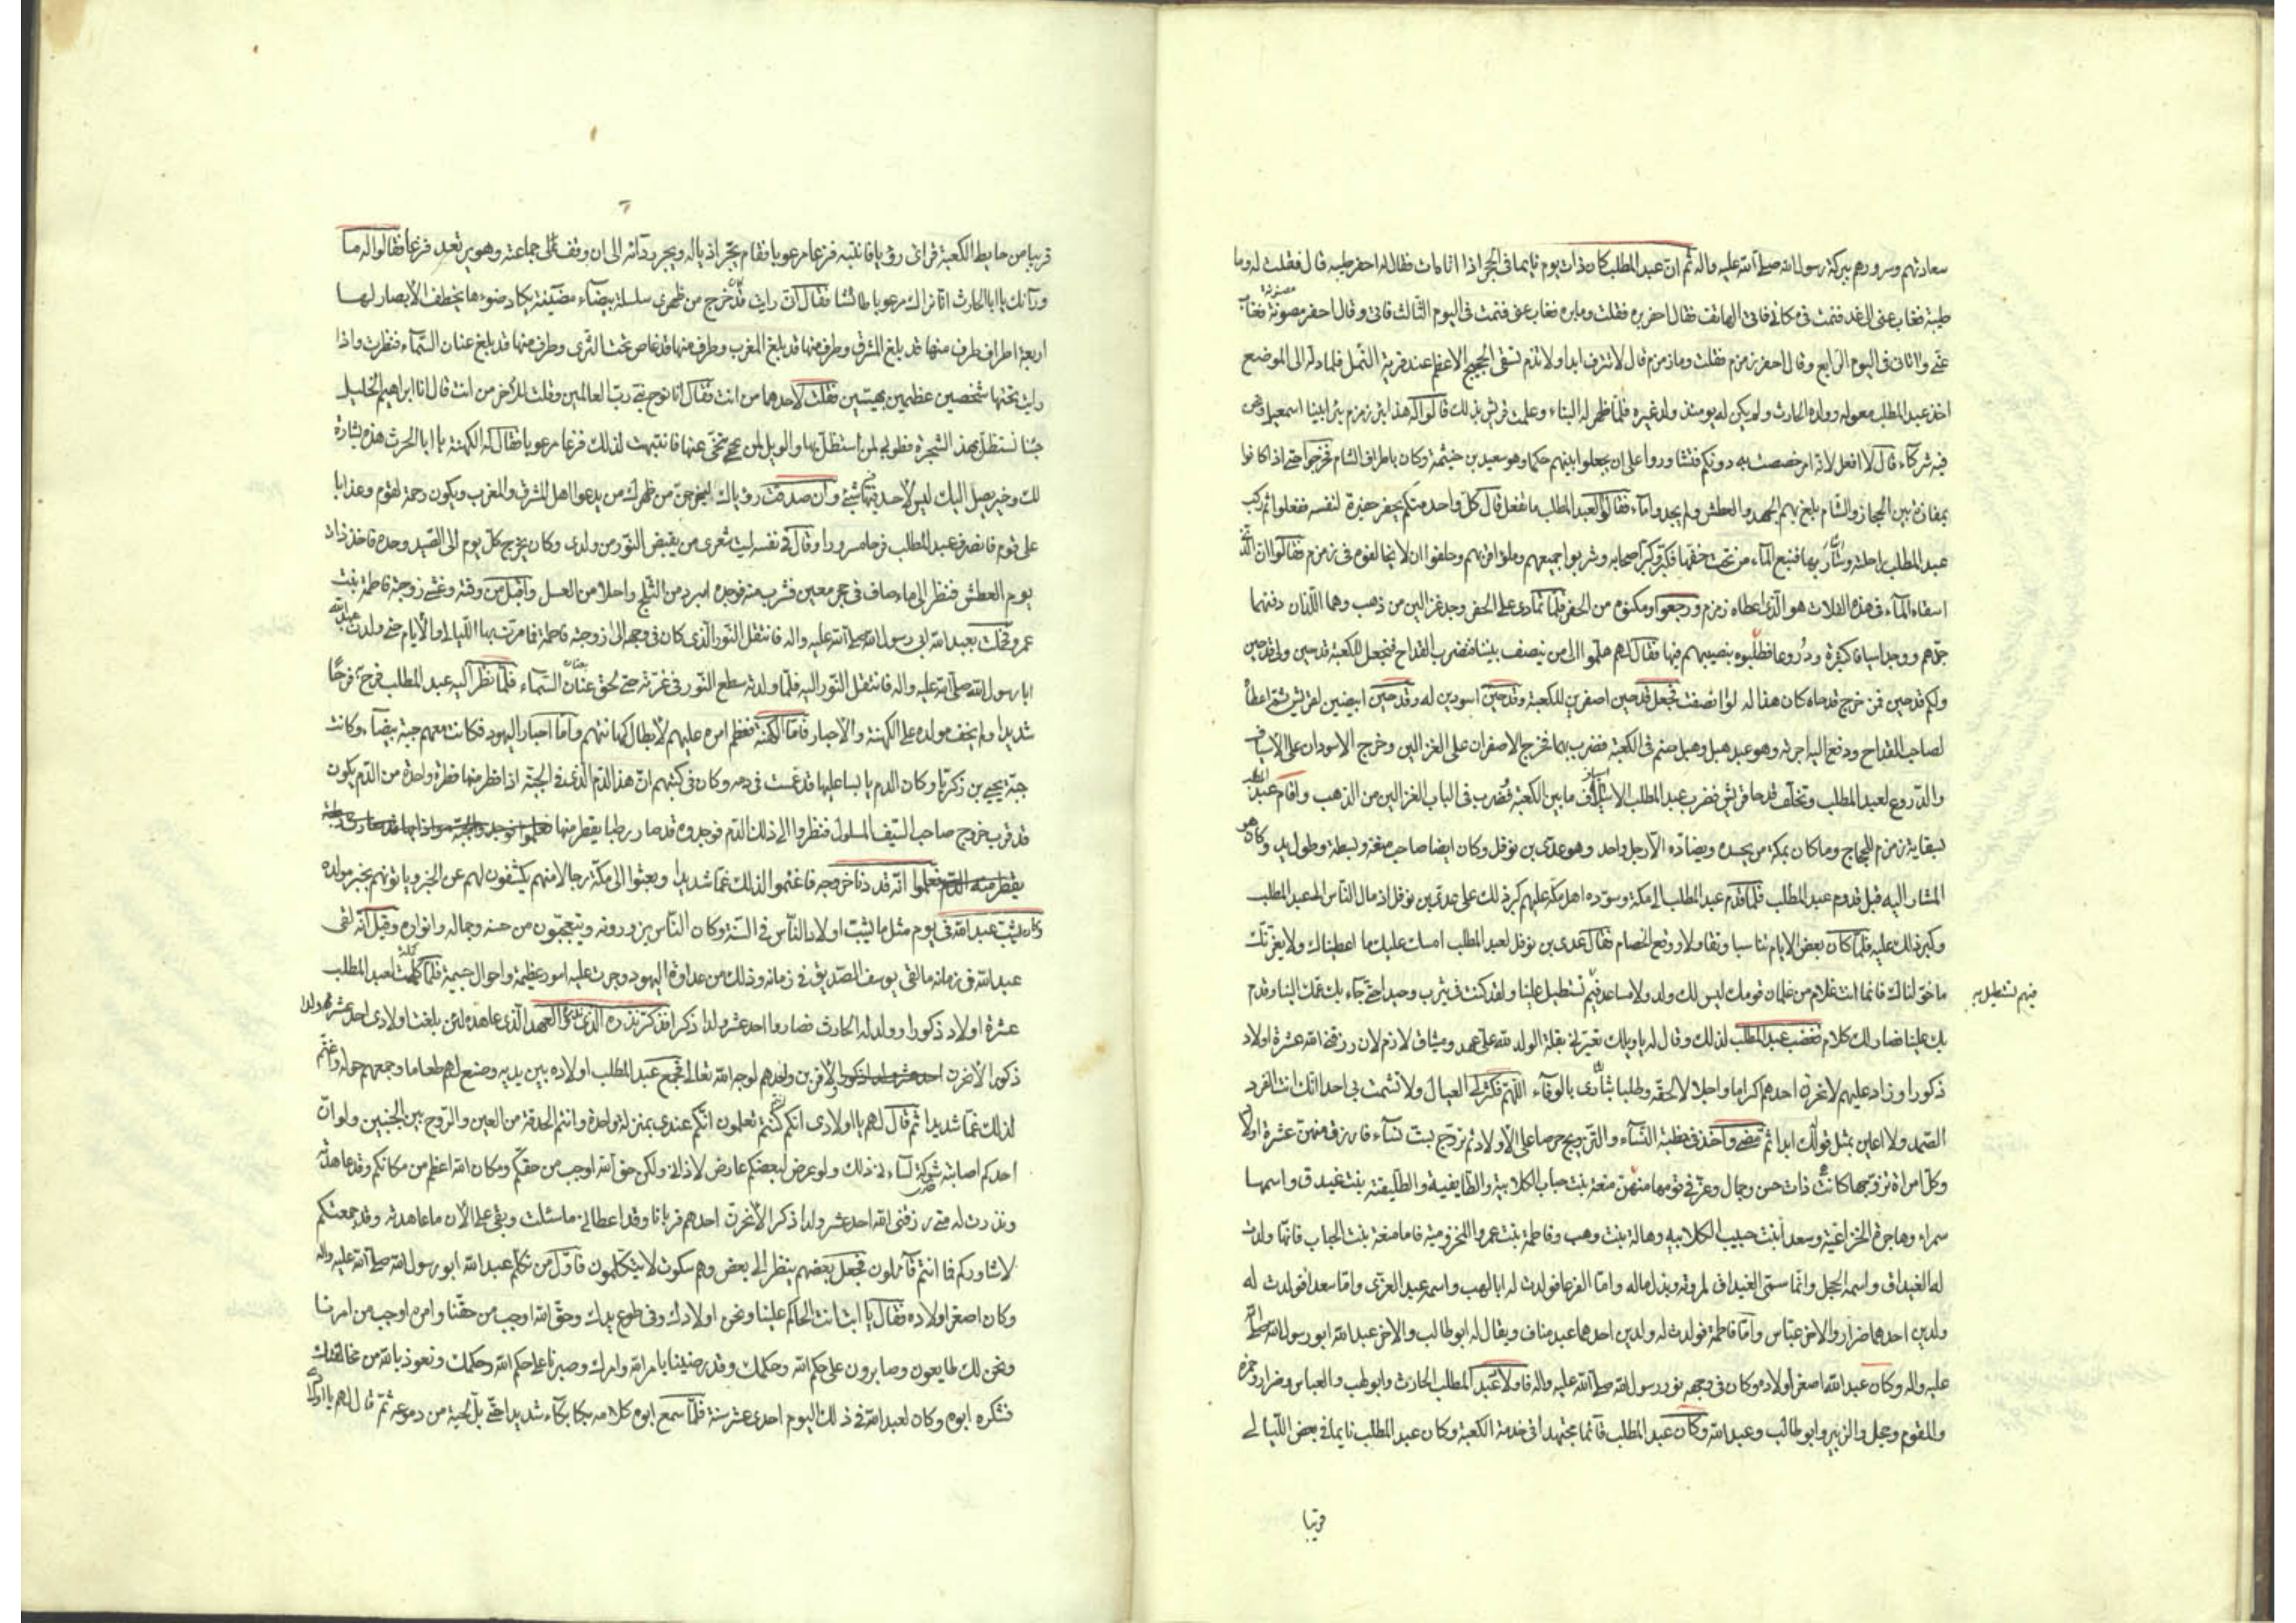 سعادتهم وسرورهم ببركة رسول الله صلى الله عليه واله ثم ان عبد المطلب كان ذات يوم نايما في الحجر اذا اتاه ات فقال له احفر طيبه قال فقلت له وما
طيبة فغاب عنى الى غد فنمت في مكانى فاتى الهاتف فقال احفر بره فقلت وما بره فغاب عنى فنمت في اليوم الثالث فاتى وقال احفر مصونة فغاب
عنى واتانى في اليوم الرابع وقال احفر زمزم فقلت وما زمزم قال لا تنزف ابدا ولا تذم تسقى الحجيج الاعظم عند قرية النمل فلما دله الى الموضع
اخذ عبد المطلب معوله وولده الحارث ولم يكن له يومئذ ولد غيره فلما ظهر له البناء وعلمت قريش بذلك قالوا له هذا بئر زمزم بئر ابينا اسمعيل ونحن
فيه شركاء قال لا افعل لانه امر خصصت به دونكم فتشاوروا على ان يجعلوا بينهم حكما وهو سعيد بن خيثمة وكان باطراف الشام فخرجوا حتى اذا كانوا
بمفازة بين الحجاز والشام بلغ بهم الجهد والعطش ولم يجدوا ماء فقالوا لعبد المطلب ما نفعل قال كل واحد منكم يحفر حفيرة لنفسه ففعلوا ثم ركب
عبد المطلب راحلته وسار بها فنبع الماء من تحت خفها فكبر وكبر اصحابه وشربوا جميعهم وملوا قربهم وحلفوا ان لا يخالفوه في زمزم فقالوا ان الذى
اسقاه الماء في هذه الفلات هو الذى اعطاه زمزم ورجعوا ومكنوه من الحفر فلما تمادى على الحفر وجد غزالين من ذهب وهما اللذان دفنهما
جرهم ووجد اسيافا كثيرة ودروعا فطلبوه بنصيبهم فيها فقال لهم هلموا الى من ينصف بيننا فنضرب القداح فنجعل للكعبة قدحين ولى قدحين
ولكم قدحين فمن خرج قدحاه كان هذا له قالوا انصفت فجعل قدحين اصفرين للكعبة وقدحين اسودين له وقدحين ابيضين لقريش ثم اعطاه
لصاحب القداح ودفع اليه اجرته وهو عند هبل وهبل صنم في الكعبة فضرب بها فخرج الاصفران على الغزالين وخرج الاسودان على الاسياف
والدروع لعبد المطلب وتخلف قدحا قريش فضرب عبد المطلب الاسياف ما بين الكعبة فضرب في الباب الغزالين من الذهب واقام عبد المطلب
لسقاية زمزم للحجاج وما كان بمكة من يحسده ويضاده الا رجل واحد وهو عدى بن نوفل وكان ايضا صاحب منعة وبسطة وطول يد وكان هو
المشار اليه قبل قدوم عبد المطلب فلما قدم عبد المطلب الى مكة وسوده اهل مكة عليهم كبر ذلك على عدى بن نوفل اذ مال الناس الى عبد المطلب
وكبر ذلك عليه فلما كان بعض الايام تناسبا وتقاولا ووقع الخصام فقال عدى بن نوفل لعبد المطلب امسك عليك ما اعطيناك ولا يغرنك
ما خولناك فانما انت غلام من غلمان قومك ليس لك ولد ولا مساعد فبم تستطيل علينا ولقد كنت في يثرب وحيدا حتى جاء بك عمك الينا وقدم
بك علينا فصار لك كلام فغضب عبد المطلب لذلك وقال له يا ويلك تعيرنى بقلة الولد لله على عهد وميثاق لازم لان رزقنى الله عشرة اولاد
ذكورا وزاد عليهم لانحرن احدهم اكراما واجلالا لحقه وطلبا بثارى بالوفاء اللهم فكثر لى العيال ولا تشمت بى احدا انك انت الفرد
الصمد ولا اعاين بمثل قولك ابدا ثم مضى واخذ في خطبة النساء والتزويج حرصا على الاولاد ثم تزوج بست نساء فارزق منهن عشرة اولاد
وكل امراة تزوجها كانت ذات حسن وجمال وعز في قومها منهن منعة بنت حباب الكلابية والطايفية والطليفة بنت غيدق واسمها
سمراء وهاجرة الخزاعية وسعدا بنت حبيب الكلابيه وهالة بنت وهب وفاطمة بنت عمرو المخزومية فاما منعة بنت الحباب فانها ولدت
له الغيداق واسمه الحجل وانما سمى الغيداق لمروته وبذل ماله واما القرعا فولدت له ابا لهب واسمه عبد العزى واما سعدا فولدت له
ولدين احدهما ضرار والاخر عباس واما فاطمة فولدت له ولدين احدهما عبد مناف ويقال له ابو طالب والاخر عبد الله ابو رسول الله صلى الله
عليه واله وكان عبد الله اصغر اولاده وكان في وجهه نور رسول الله صلى الله عليه واله فاولاد عبد المطلب الحارث وابو لهب والعباس وضرار وحمزه
والمقوم وحجل والزبير وابو طالب وعبد الله وكان عبد المطلب قائما مجتهدا في خدمة الكعبة وكان عبد المطلب نايما في بعض الليالى
قريبا
قريبا من حايط الكعبة فراى رؤيا فانتبه فزعا مرعوبا فقام يجر اذياله ويجر ردائه الى ان وقف على جماعته وهو يرتعد فزعا فقالوا له ما
ورآئك يا ابا الحارث انا نراك مرعوبا طائشا فقال انى رايت قد خرج من ظهرى سلسلة بيضاء مضيئة يكاد ضوءها يخطف الابصار لها
اربعة اطراف طرف منها قد بلغ المشرق وطرف منها قد بلغ المغرب وطرف منها قد غاص تحت الثرى وطرف منها قد بلغ عنان السماء فنظرت واذا
رايت تحتها شخصين عظيمين بهيين فقلت لاحدهما من انت فقال انا نوح نبى رب العالمين وقلت للاخر من انت قال انا ابراهيم الخليل
جئنا نستظل بهذه الشجرة فطوبى لمن استظل بها والويل لمن تنحى عنها فانتبهت لذلك فزعا مرعوبا فقال له الكهنة يا ابا الحرث هذه بشارة
لك وخير يصل اليك ليس لاحد فيها شئ وان صدقت رؤياك ليخرجن من ظهرك من يدعوا اهل المشرق والمغرب ويكون رحمة لقوم وعذابا
على قوم فانصرف عبد المطلب فرحا مسرورا وقال في نفسه ليت شعرى من يقبض النور من ولدى وكان يخرج كل يوم الى الصيد وحده فاخذ ذات
يوم العطش فنظر الى ماء صاف في حجر معين فشرب منه فوجده ابرد من الثلج واحلا من العسل واقبل من وقته وغشى زوجته فاطمة بنت
عمرو فحملت بعبد الله ابى رسول الله صلى الله عليه واله فانتقل النور الذى كان في وجهه الى زوجته فاطمة فما مرت بها الليالى والايام حتى ولدت عبد الله
ابا رسول الله صلى الله عليه واله فانتقل النور اليه فلما ولدته سطع النور في غرته حتى لحق عنان السماء فلما نظر اليه عبد المطلب فرح فرحا
شديدا ولم يخف مولده على الكهنة والاحبار فاما الكهنة فعظم امره عليهم لابطال كهانتهم واما احبار اليهود فكانت معهم جبة بيضاء وكانت
جبة يحيى بن زكريا وكان الدم يابسا عليها قد غمست في دمه وكان في كتبهم ان هذا الدم الذى في الجبة اذا قطر منها قطرة واحدة من الدم يكون
قد قرب خروج صاحب السيف المسلول فنظروا الى ذلك الدم فوجدوه قد صار رطبا يقطر منها
فعلموا انه قد دنا خروجه فاغتموا لذلك غما شديدا وبعثوا الى مكة رجالا منهم يكشفون لهم عن الخبر وياتونهم بخبر مولده
وكان يشب عبد الله في يوم مثل ما يشب اولاد الناس في السنة وكان الناس يزورونه ويتعجبون من حسنه وجماله وانواره وقيل انه لقى
عبد الله في زمانه ما لقى يوسف الصديق في زمانه وذلك من عداوة اليهود وجرت عليه امور عظيمة واحوال جسيمة فلما كملت لعبد المطلب
عشرة اولاد ذكورا وولد له الحارث فصاروا احد عشر ولدا ذكرا فذكر نذره الذى نذر والعهد الذى عاهده لئن بلغت اولادى احد عشر ولدا
ذكورا لاقربن ولانحرن احدهم لوجه الله تعالى فجمع عبد المطلب اولاده بين يديه وصنع لهم طعاما وجمعهم حوله واغتم
لذلك غما شديدا ثم قال لهم يا اولادى انكم كنتم تعلمون انكم عندى بمنزلة واحدة وانتم الحدقة من العين والروح بين الجنبين ولو ان
احدكم اصابته شوكة لساءنى ذلك ولو عرض لبعضكم عارض لاذانى ولكن حق الله اوجب من حقكم ومكان الله اعظم من مكانكم وقد عاهدته
ونذرت له متى رزقنى الله احد عشر ولدا ذكرا لانحرن احدهم قربانا وقد اعطانى ما سئلت وبقى على الان ما عاهدته وقد جمعتكم
لاشاوركم فما انتم قآئلون فجعل بعضهم ينظر الى بعض وهم سكوت لا يتكلمون فاول من تكلم عبد الله ابو رسول الله صلى الله عليه واله
وكان اصغر اولاده فقال يا ابت انت الحاكم علينا ونحن اولادك وفى طوع يدك وحق الله اوجب من حقنا وامره اوجب من امرنا
ونحن لك طايعون وصابرون على حكم الله وحكمك وقد رضينا بامر الله وامرك وصبرنا على حكم الله وحكمك ونعوذ بالله من مخالفتك
فشكره ابوه وكان لعبد الله في ذلك اليوم احدى عشر سنة فلما سمع ابوه كلامه بكا بكاء شديدا حتى بل لحيته من دموعه ثم قال لهم يا اولادى